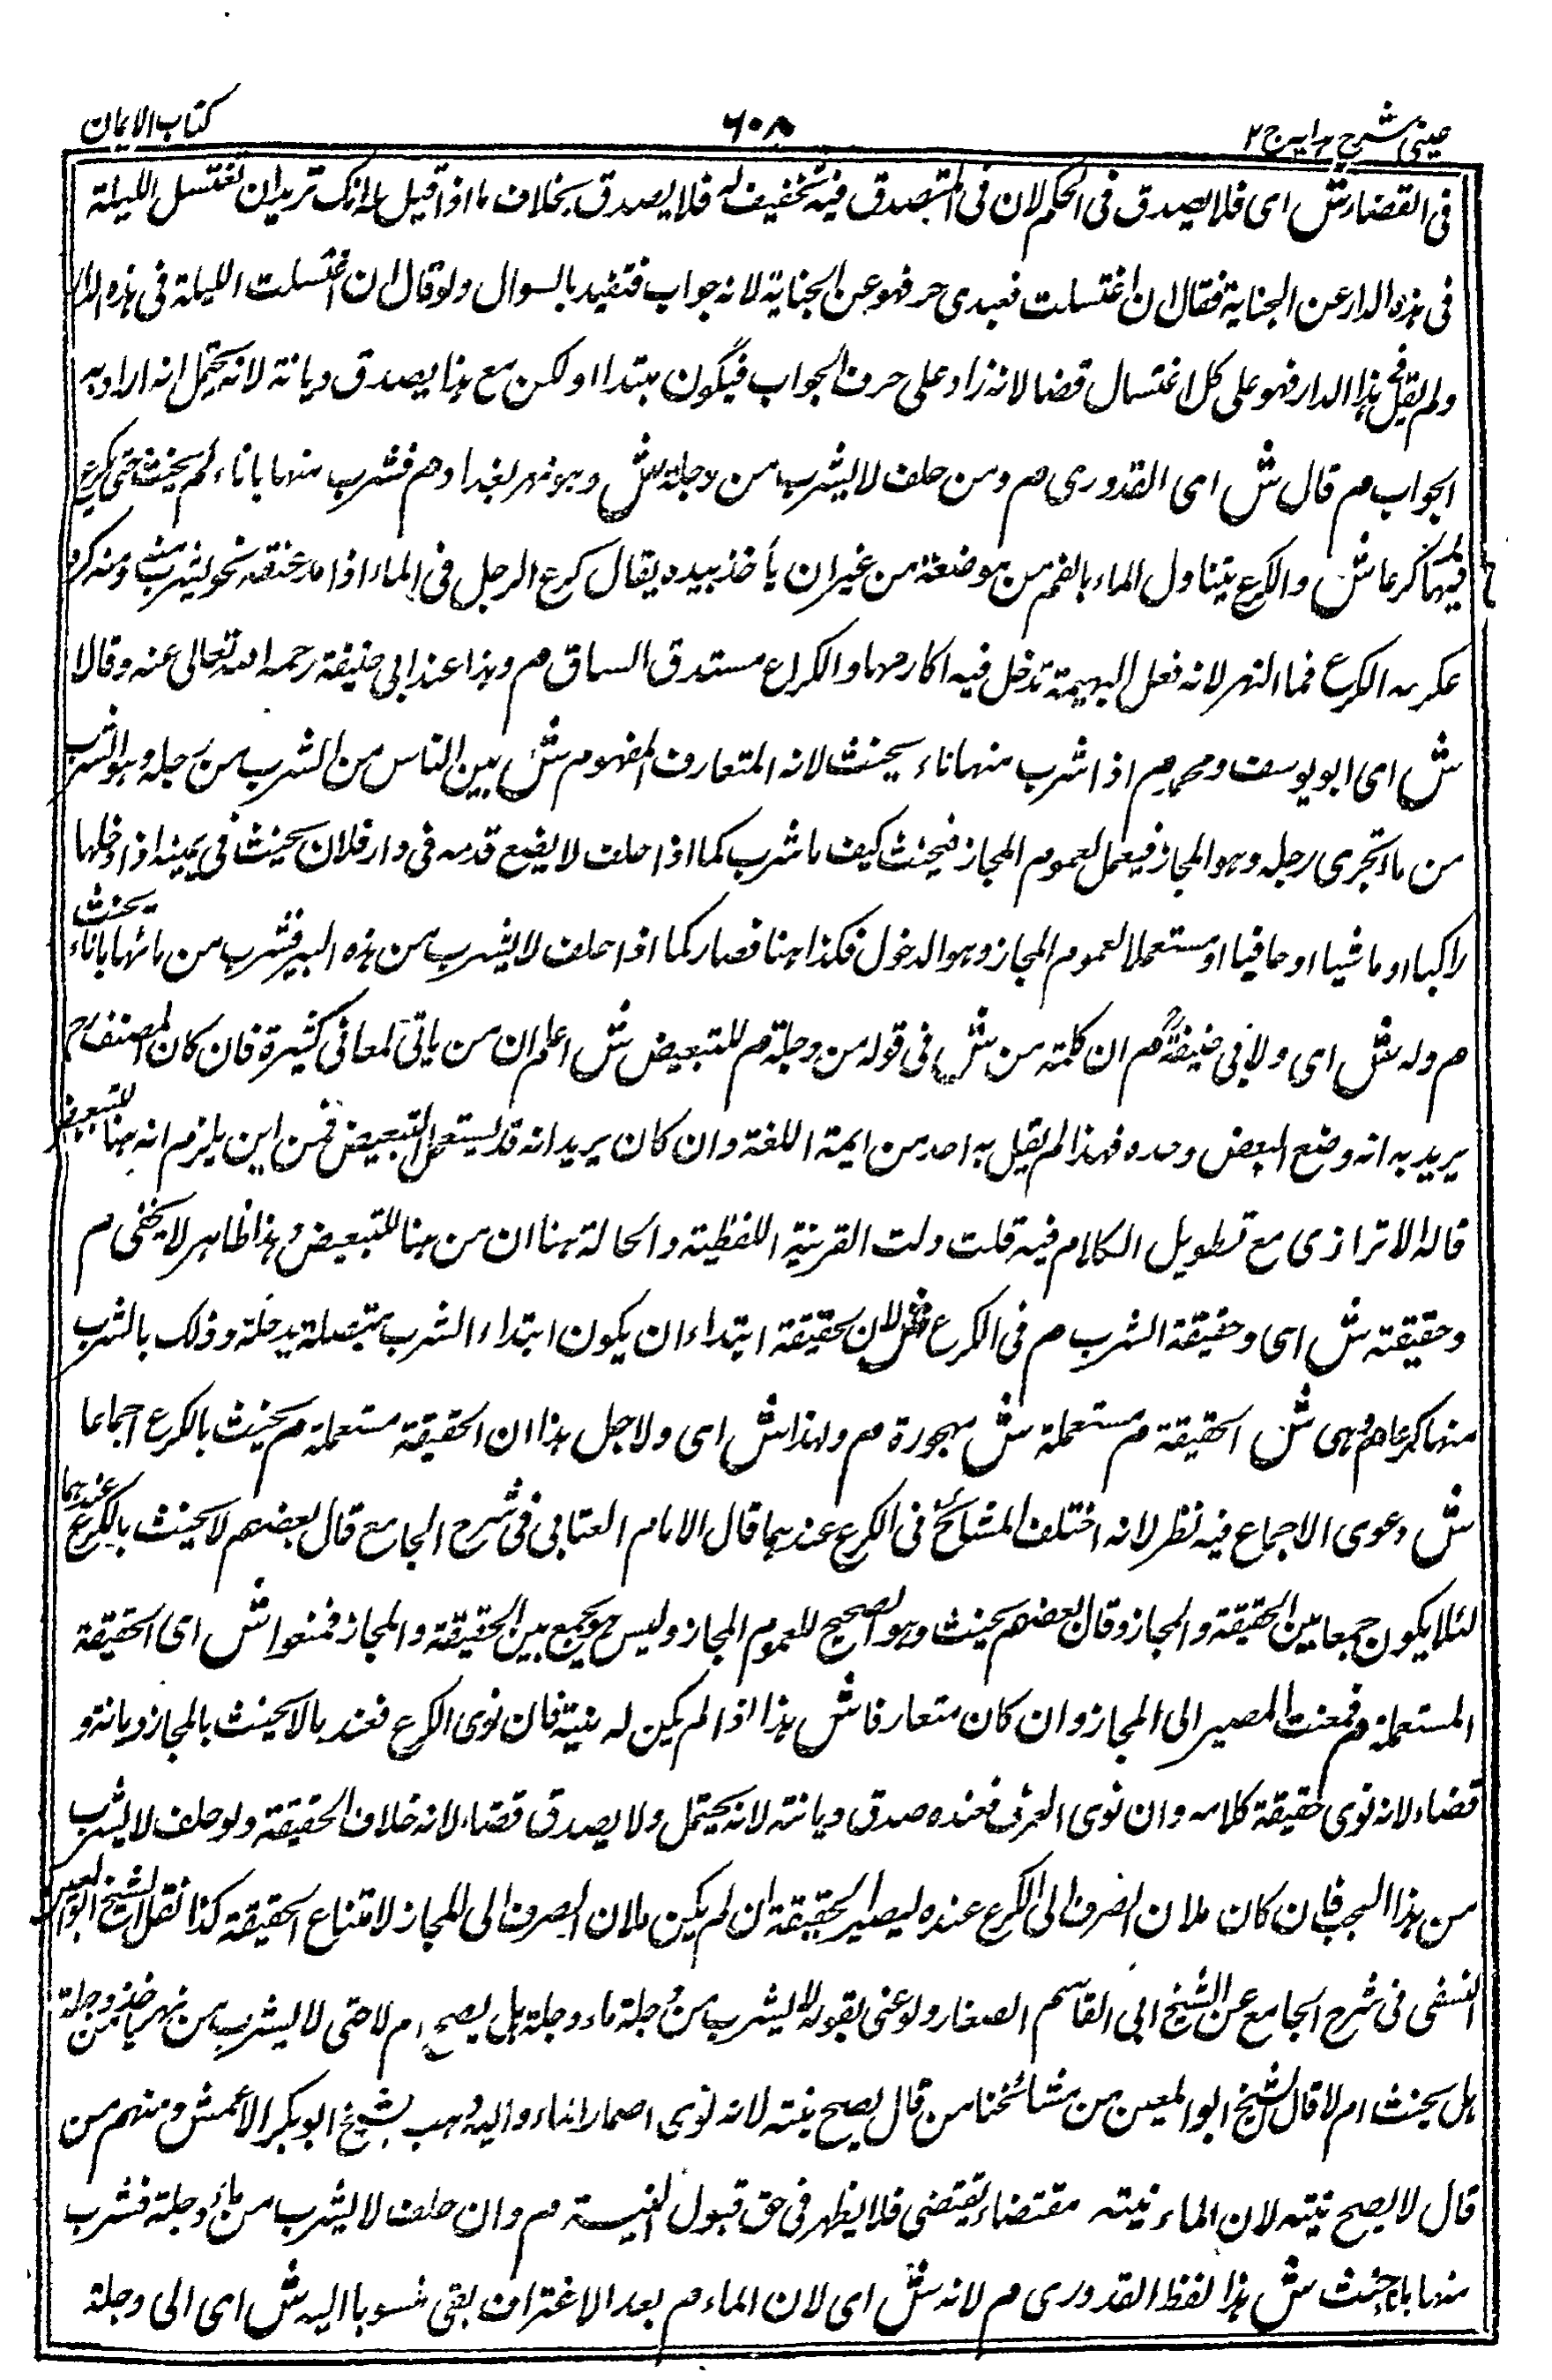 عینی شرح ہدایہ ج ۲
۶۰۸
کتاب الایمان
فی القضاء ش ای فلا یصدق فی الحکم لان فی التصدق فیہ تخفیف لہ فلا یصدق بخلاف ما اذا قیل لہ انک ترید ان تغتسل اللیلۃ
فی ہذہ الدار عن الجنابۃ فقال ان اغتسلت فعبدی حر فہو عن الجنابۃ لانہ جواب فتقید بالسوال ولو قال ان اغتسلت اللیلۃ فی ہذہ الدار
ولم یقل فی ہذا الدار فہو علی کل اغتسال قضا لانہ زاد علی حرف الجواب فیکون مبتدا او لکن مع ہذا یصدق دیانۃ لانہ یحتمل انہ اراد بہ
الجواب م قال ش ای القدوری م ومن حلف لا یشرب من دجلۃ ش وہو نہر بغداد م فشرب منہا باناء لم یحنث حتی یکرع
فیہا کرعا ش والکرع یتناول الماء بالفم من موضعۃ من غیر ان یأخذ بیدہ یقال کرع الرجل فی الماء اذا مد عنقہ نحو یشرب منہ ومنہ کرہ
عکرمہ الکرع فما النہر لانہ فعل البہیمۃ تدخل فیہ اکارعہا والکراع مستدق الساق م وہذا عند ابی حنیفۃ رحمہ اللہ تعالی عنہ وقالا
ش ای ابو یوسف ومحمد م اذا شرب منہا اناء یحنث لانہ المتعارف المفہوم ش بین الناس من الشرب من جلہ وہو الشرب
من ماء تجری رجلہ وہو المجاز فیعمل لعموم المجاز فیحنث کیف ما شرب کما اذا حلف لا یضع قدمہ فی دار فلان یحنث فی یمینہ اذا دخلہا
راکبا او ماشیا او حافیا او مستعملا لعموم المجاز وہو الدخول فکذا ہنا فصار کما اذا حلف لا یشرب من ہذہ البیر فشرب من مائہا باناء یحنث
م ولہ ش ای ولابی حنیفۃؒ م ان کلمۃ من ش فی قولہ من دجلۃ م للتبعیض ش اعلم ان من یاتی لمعانی کثیرۃ فان کان المصنفؒ
یرید بہ انہ وضع البعض وحدہ فہذا لم یقل بہ احد من ایمۃ اللغۃ وان کان یرید انہ قد یستعمل للتبعیض فمن این یلزم انہ ہہنا للتبعیض
قالہ الاترازی مع تطویل الکلام فیہ قلت دلت القرینۃ اللفظیۃ والحالۃ ہہنا ان من ہنا للتبعیض وہذا ظاہر لا یخفی م
وحقیقتہ ش ای وحقیقۃ الشرب م فی الکرع ش لان حقیقۃ ابتداء ان یکون ابتداء الشرب متصلۃ بدجلۃ وذلک بالشرب
منہا کرعا م وہی ش الحقیقۃ م مستعملۃ ش مہجورۃ م ولہذا ش ای ولاجل ہذا ان الحقیقۃ مستعملۃ م یحنث بالکرع اجماعا
ش دعوی الاجماع فیہ نظر لانہ اختلف المشائخ فی الکرع عندہما قال الامام العتابی فی شرح الجامع قال بعضہم لا یحنث بالکرع عندہما
لئلا یکون جمعا بین الحقیقۃ والمجاز وقال بعضہم یحنث وہو الصحیح للعموم المجاز ولیس ہو بجمع بین الحقیقۃ والمجاز فمنعوا ش ای الحقیقۃ
المستعملۃ م فمنعت المصیر الی المجاز وان کان متعارفا ش ہذا اذا لم یکن لہ نیۃ فان نوی الکرع فعندہما لا یحنث بالمجاز دیانۃ و
قضاء لانہ نوی حقیقۃ کلامہ وان نوی العرف فعندہ صدق دیانتہ لانہ یحتمل ولا یصدق قضاء لانہ خلاف الحقیقۃ ولو حلف لا یشرب
من ہذا الجب فان کان ملان انصرف الی الکرع عندہ لیصیر الحقیقۃ ان لم یکن ملان انصرف الی المجاز لامتناع الحقیقۃ کذا نقل الشیخ ابو المعین
النسفی فی شرح الجامع عن الشیخ ابی القاسم الصفار ولو عنی بقولہ لا یشرب من دجلۃ ماء دجلۃ ہل یصح ام لا حتی لا یشرب من نہر یاخذ من دجلۃ
ہل یحنث ام لا قال الشیخ ابو المعین من مشائخنا من قال یصح نیتہ لانہ نوی اضمار الماء والیہ ذہب الشیخ ابو بکر الاعمش ومنہم من
قال لا یصح نیتہ لان الماء نیتہ مقتضاء یقتضی فلا یظہر فی حق قبول النیۃ م وان حلف لا یشرب من ماء دجلۃ فشرب
منہا باناء حنث ش ہذا لفظ القدوری م لانہ ش ای لان الماء م بعد الاغتراف بقی منسوبا الیہ ش ای الی دجلۃ